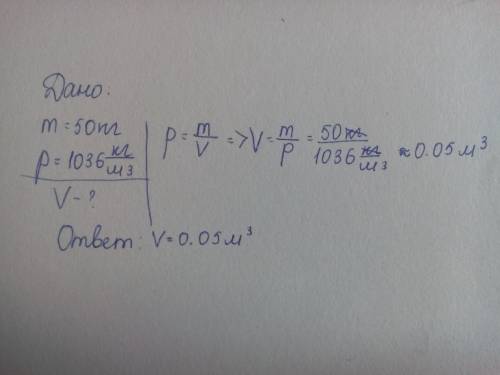 Дано:
m = 50кг
ρ = 1036 кг/м³
V - ?
ρ = m/V => V = m/ρ = 50кг/1036 кг/м³ ≈ 0.05м³
Ответ: V = 0.05м³